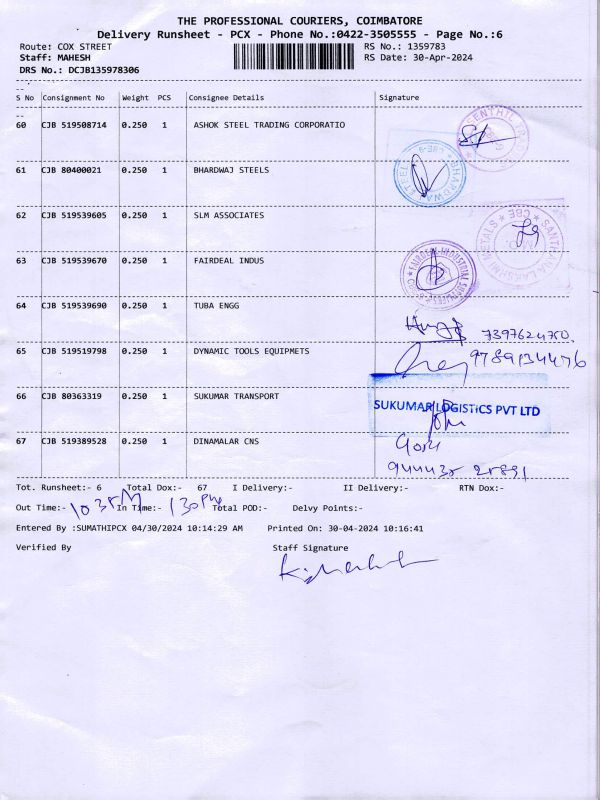 THE PROFESSIONAL COURIERS, COIMBATORE
Delivery Runsheet - PCX - Phone No.:0422-3505555 - Page No.:6
Route: COX STREET RS No.: 1359783
Staff: MAHESH RS Date: 30-Apr-2024
DRS No.: DCJB135978306
S No Consignment No Weight PCS Consignee Details Signature
60 CJB 519508714 0.250 1 ASHOK STEEL TRADING CORPORATIO
61 CJB 80400021 0.250 1 BHARDWAJ STEELS
62 CJB 519539605 0.250 1 SLM ASSOCIATES
63 CJB 519539670 0.250 1 FAIRDEAL INDUS
64 CJB 519539690 0.250 1 TUBA ENGG
7397624750
65 CJB 519519798 0.250 1 DYNAMIC TOOLS EQUIPMETS
9789134476
66 CJB 80363319 0.250 1 SUKUMAR TRANSPORT
SUKUMAR LOGISTICS PVT LTD
67 CJB 519389528 0.250 1 DINAMALAR CNS
Tot. Runsheet:- 6 Total Dox:- 67 I Delivery:- II Delivery:- RTN Dox:-
Out Time:- In Time:- Total POD:- Delvy Points:-
Entered By :SUMATHIPCX 04/30/2024 10:14:29 AM Printed On: 30-04-2024 10:16:41
Verified By Staff Signature